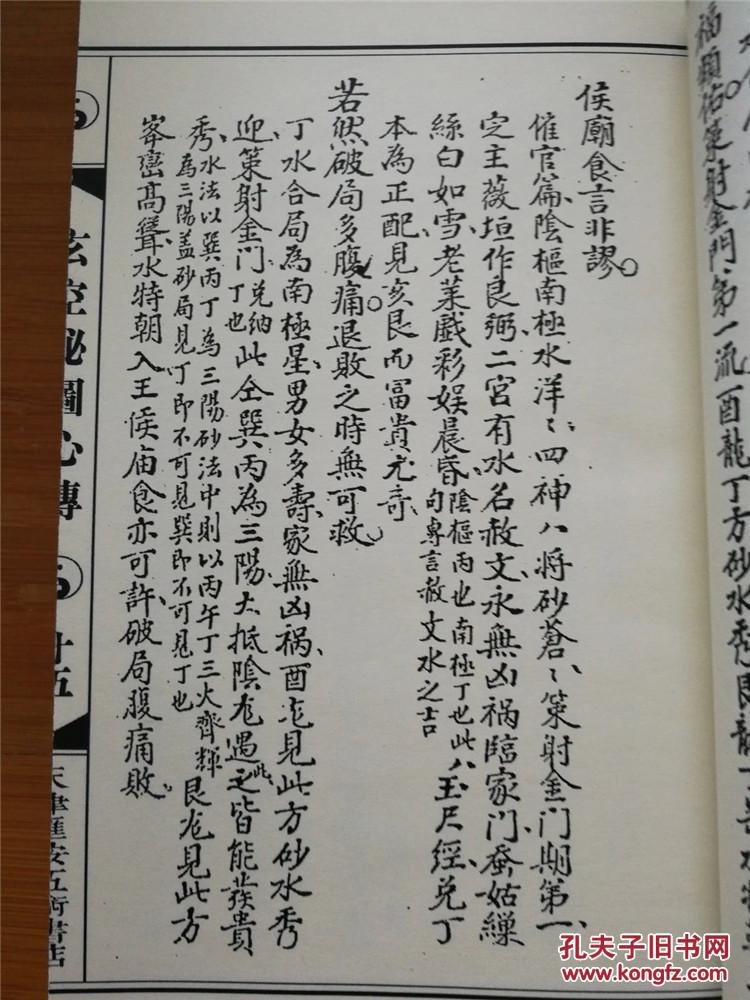 福顯佑策射金門第一流酉龍丁方砂水秀艮龍
侯廟食言非謬
催官篇陰樞南極水洋〻四神八將砂蒼〻策射金门期第一
定主薇垣作良弼二宮有水名赦文永無凶祸臨家门蚕姑繰
絲白如雪老莱戲彩娱晨昏陰樞丙也南極丁也此八句專言赦文水之吉玉尺經兑丁
本為正配見亥艮而冨貴尤奇
若然破局多腹痛退敗之時無可救
丁水合局為南極星男女多壽家無凶祸酉龙見此方砂水秀
迎策射金门兑纳丁也此仝巽丙為三陽大抵陰龙遇之此皆能葂貴
秀水法以巽丙丁為三陽砂法中則以丙午丁三火齊輝為三陽盖砂局見丁即不可見巽即不可見丁也艮龙見此方
峯巒髙聳水特朝入王侯庙食亦可許破局腹痛敗
玄空秘圖心傳
廿五
天津匯安五術書店
孔夫子旧书网
www.kongfz.com